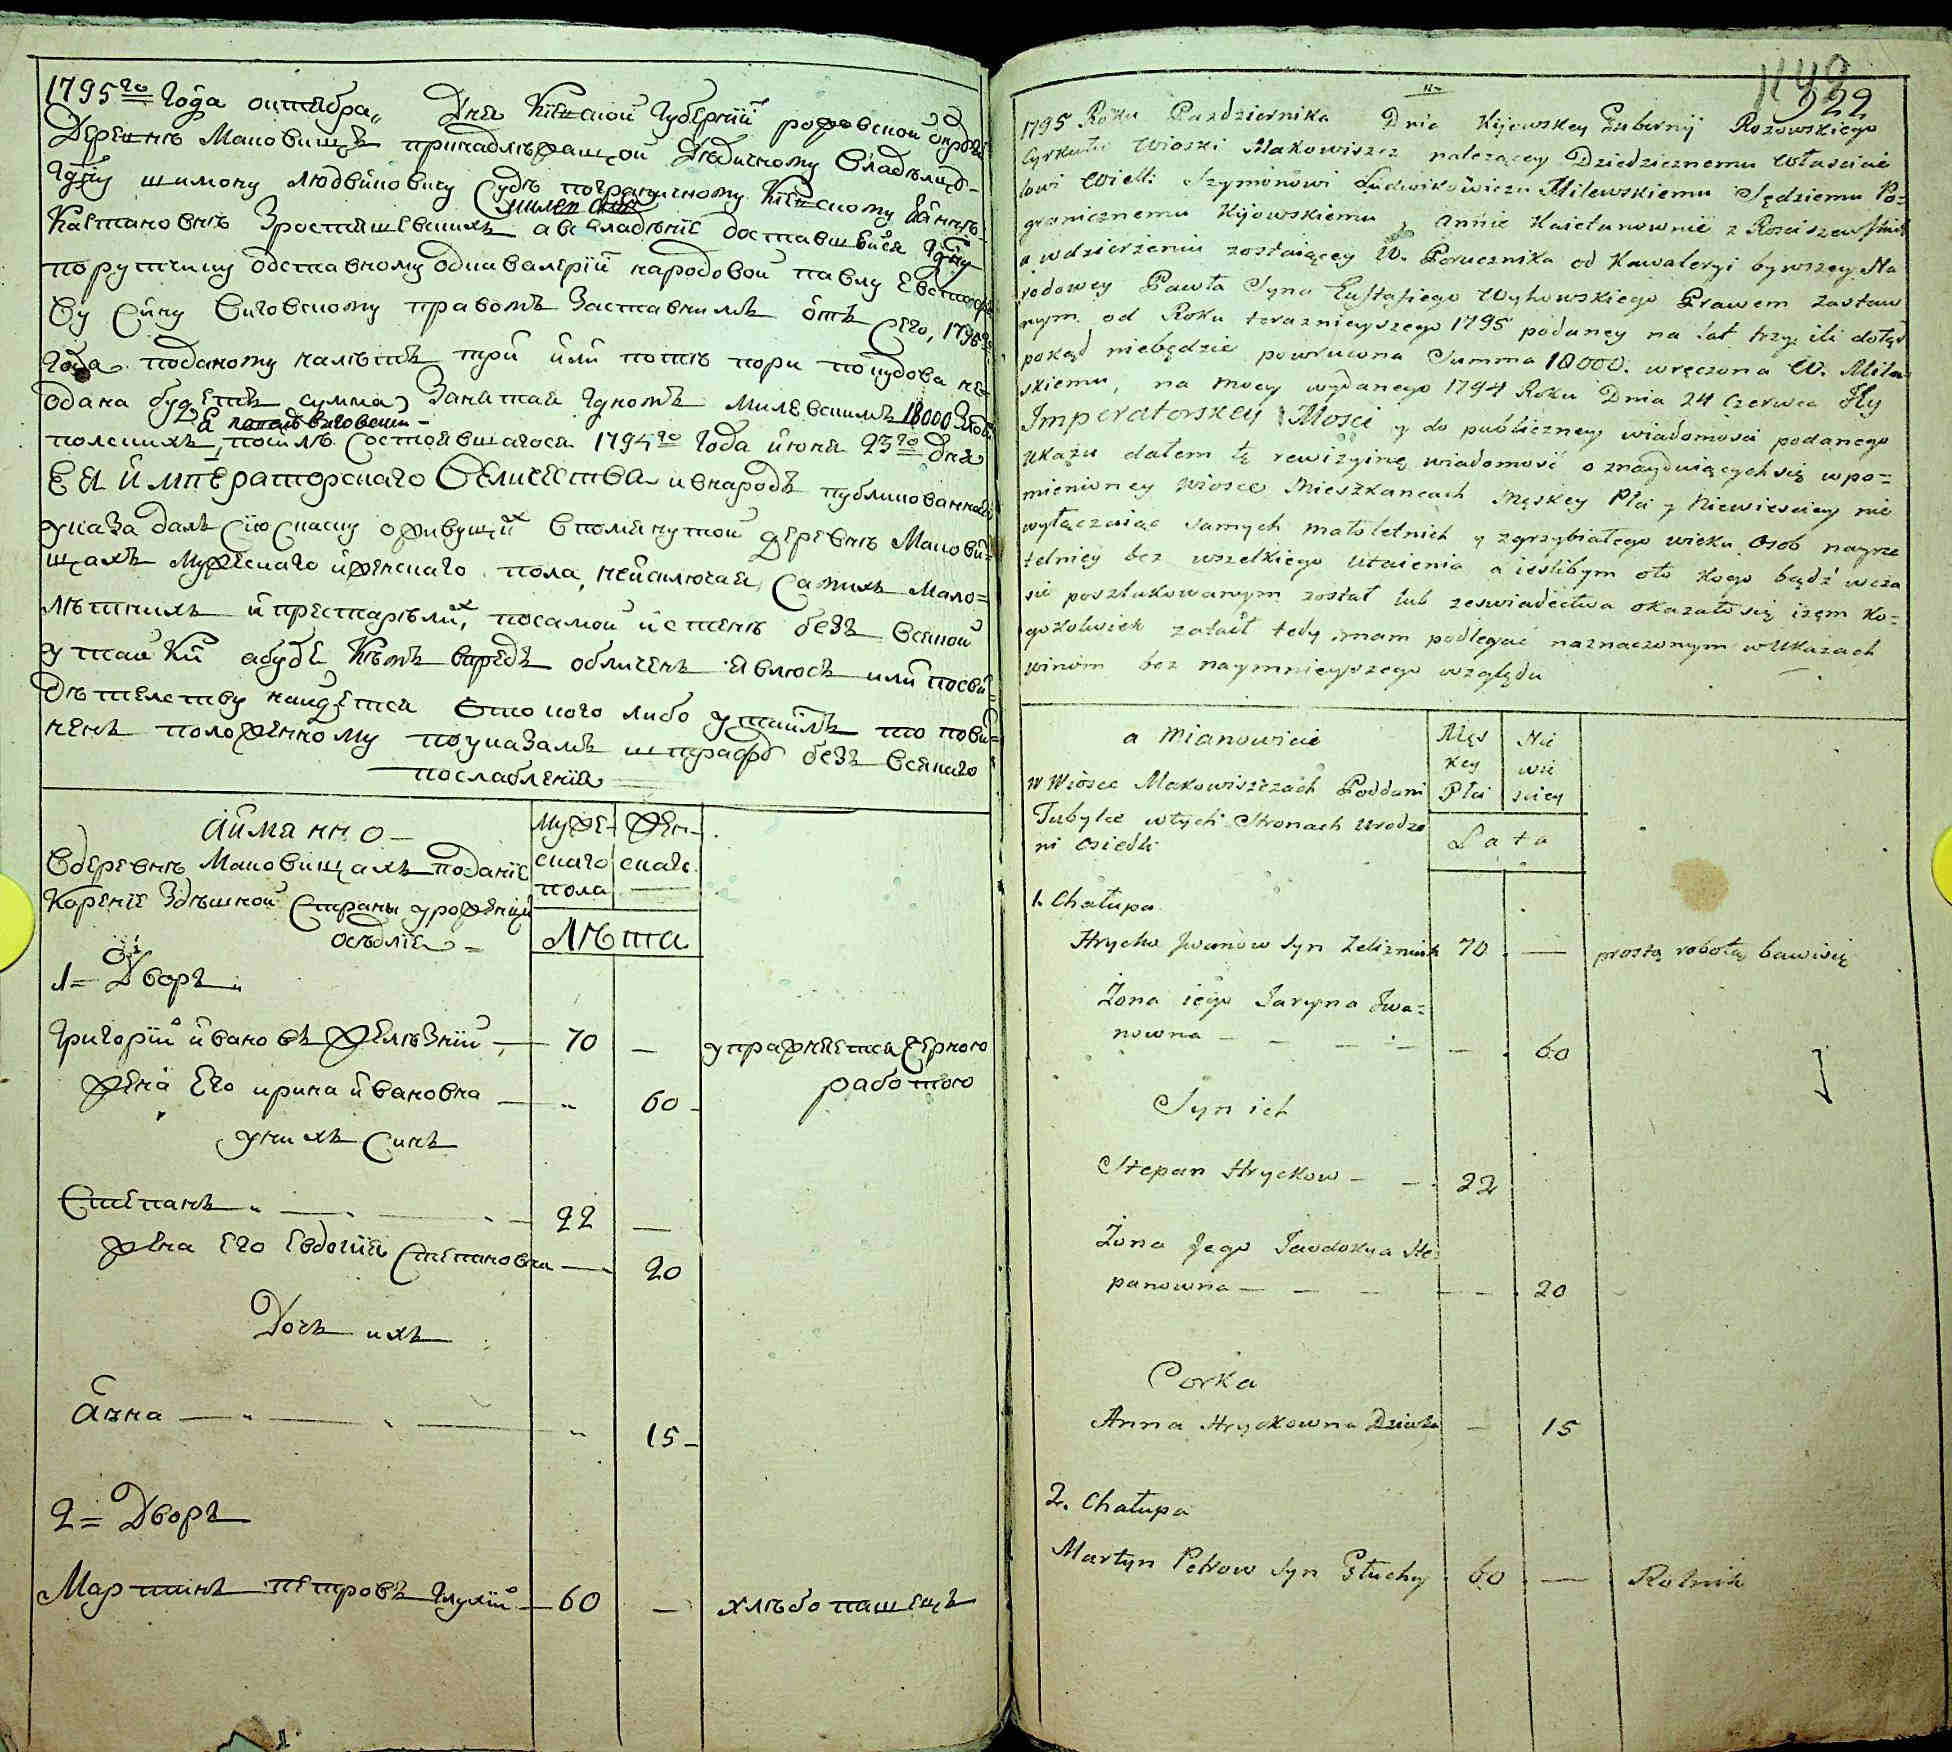 1795го Года октября, Дня Кіевской Губерніи рожовской округи
Деревнѣ Маковищъ принадлѣжащой Дѣдичному Владѣлцу
Гдну шимону людвиковичу Судѣ пограничному Кіевскому и аннѣ
милевским
Каетановнѣ Зростишевскихъ а во владѣніе доставшейся Гдну
порутчику одставному одкавалерій народовой павлу Евстафіе
ву Сину Виговскому правомъ Заставнимъ отъ Сего, 1795го
Года поданому налѣтъ три или потѣ пори покудова не
одана будетъ сумма Занятая Гдномъ милевскимъ 18000 Злот
полскихъ, послѣ Состоявшагося 1794го Года июня 23го дня
ЕЯ ИмпЕраторскаго Величества и внародъ публикованнаго
указа далъ Сію Скаску оживущих вПомянутой деревнѣ Макови=
щахъ мужескаго ижЕнскаго пола, неисключая Самихъ Мало=
лѣтнихъ и престарѣлих, посамой истенѣ безъ всякой
утайки абуде Кѣмъ вередъ обличенъ явлюсь или посви=
дѣтелству найдется Что кого либо утаилъ то пови=
ненъ положенному поуказамъ штрафу безъ всякаго
послабленія
Аимянно
Вдеревнѣ Маковищахъ поданіе
Кореніе Здѣшной Страны урожЕніи
осѣдліе
Муже-
скаго
пола
Жен-
скаго
Лѣта
1= Дворъ
Григорій ивановъ Желѣзній 70 — упражняется черною
работою
Жена Его ирина ивановна 60
унихъ Синъ
Степанъ 22 —
жена Его Евдокія Степановна 20
Дочъ ихъ
Анна 15
2= Дворъ
Мартинъ петровъ Глухій 60 — хлѣбопашецъ
922
1795 Roku Pazdziernika Dnia Kijowskey Gubernij Rozowskiego
Cyrkułu Wioski Makowiszcz nalezącey Dziedzicznemu Własciciε
lowi Wielli Szymonowi Ludwikowiczu Milewskiemu Sędziemu Po=
granicznemu Kijowskiemu y Annie Kaietanownie z Rosciszewskich
a wdzierżeniu zostaiącey W. Porucznika od Kawaleryi bywszey Na
rodowey Pawła Syna Eustafiego Wyhowskiego Prawem zastaw
nym od Roku teraznieyszego 1795 podaney na lat trzy ili dotąd
pokąd niebędzie powrucona Summa 18000. wręczona W. Milew
skiemu, na mocy wydanego 1794 Roku Dnia 24 Czerwca Iey
Imperatorskey Mosci y do publiczney wiadomosci podanego
Ukazu dałem tę rewizyiną wiadomość o znayduiących się wpo=
mienioney Wiosce Mieszkancach Męskey Płci y Niewiesciey nie
wyłączaiąc samych małoletnich y zgrzybiałego wieku Osob nayrze
telniey bez wszelkiego utaienia a iesliby m oto kogo bądź wcza
sie poszlakowanym został lub zeswiadectwa okazało się iżem ko=
gożkolwiek zataił tedy mam podlegać naznaczonym w Ukazach
winom bez naymnieyszego względu
a mianowicie
w Wiosce Makowiszczach Poddani
Tubylce wtych Stronach Urodze
ni Osiedli
Męs
key
Płci
Nie
wie
sciey
Lata
1. Chałupa
Hryćko Jwanow Syn Zelizniak 70 — prostą robotą bawi się
Żona iego Jaryna Jwa=
nowna 60
Syn ich
Stepan Hryckow 22
Żona Jego Jawdokya Ste=
panowna 20
Corka
Anna Hryckowna Dziewka — 15
2. Chałupa
Martyn Petrow Syn Głuchy 60 — Rolnik